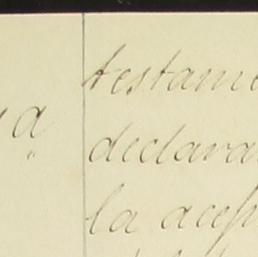 testame
a declara
la acep